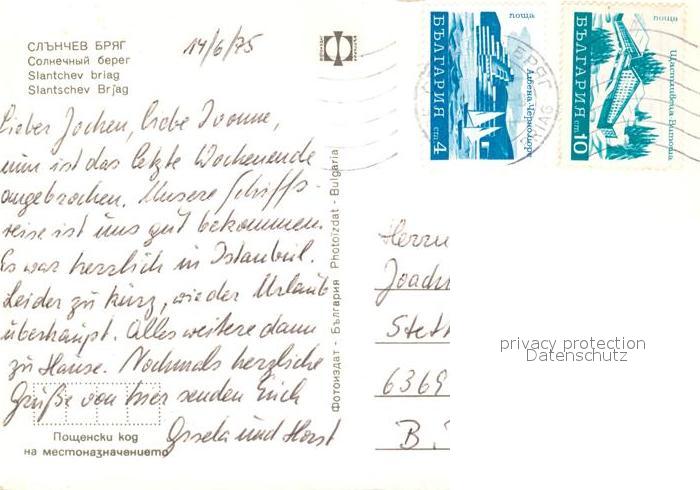 СЛЪНЧЕВ БРЯГ
Солнечный берег
Slantchev briag
Slantschev Brjag
14/6/75
Lieber Jochen, liebe Ivonne,
nun ist das letzte Wochenende
angebrochen. Unsere Schiffs-
reise ist uns gut bekommen.
Es war herrlich in Istanbul.
Leider zu kurz, wie der Urlaub
überhaupt. Alles weitere dann
zu Hause. Nochmals herzliche
Grüße von hier senden Euch
Gisela und Horst
Пощенски код
на местоназначението
Фотоиздат - България Photoizdat - Bulgaria
поща
БЪЛГАРИЯ
ст 4
Албена-Черноморие
поща
БЪЛГАРИЯ
ст 10
Щастливеца Витоша
БРЯГ
Herrn
Joach
Stett
6369
B.
privacy protection
Datenschutz